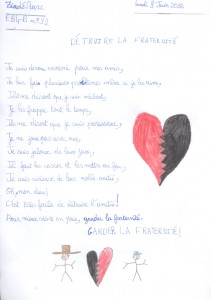 lundi 8 Juin 2020
DÉTRUIRE LA FRATERNITÉ
Je suis devenu mes amis,
Je leur fais plusieurs même si je les aime,
Ils me disent que je suis méchant,
Je les frappe tout le temps,
Ils me disent que je suis
Je ne joue pas avec eux,
Je suis jaloux de leur jeu,
Je fais les casses et les mets en feu,
Je suis de leur amitié,
Oh, mon dieu!
C'est très facile de détruire l'amitié!
Pour mieux vivre en paix, gardez la fraternité.
GARDER LA FRATERNITÉ!